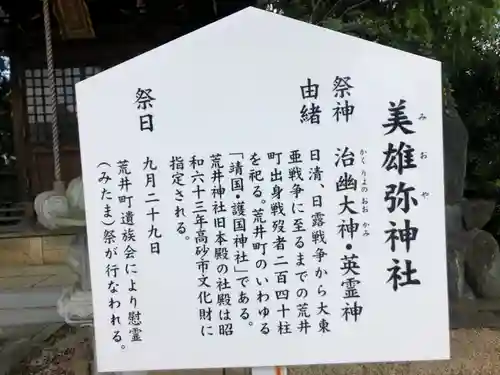 美雄弥神社
みおや
祭神　治幽大神・英霊神
かくりよのおおかみ
由緒　日清、日露戦争から大東
亜戦争に至るまでの荒井
町出身戦歿者二百四十柱
を祀る。荒井町のいわゆる
「靖国・護国神社」である。
荒井神社旧本殿の社殿は昭
和六十三年高砂市文化財に
指定される。
祭日　九月二十九日
荒井町遺族会により慰霊
（みたま）祭が行なわれる。